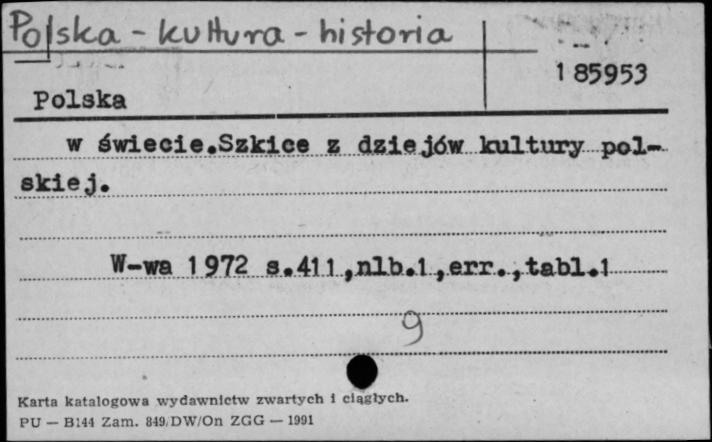 Polska - kultura - historia
185953
Polska
w świecie.Szkice z dziejów kultury pol-
skiej.
W-wa 1972 s.411,nlb.1,err.,tabl.1
9
Karta katalogowa wydawnictw zwartych i ciągłych.
PU — B144 Zam. 849/DW/On ZGG — 1991